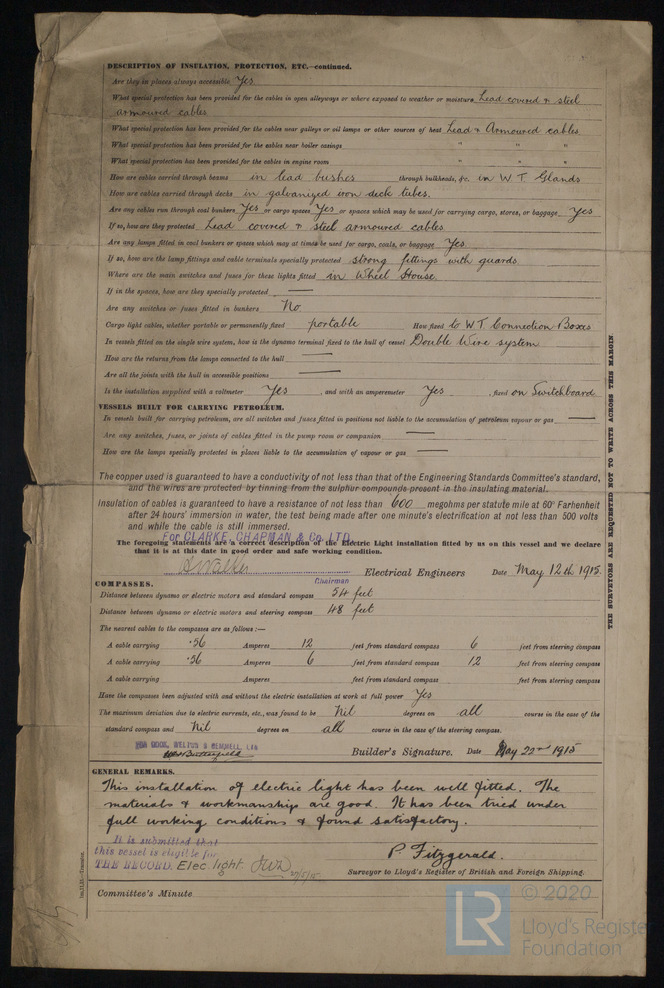 DESCRIPTION OF INSULATION, PROTECTION, ETC.—continued.
Are they in places always accessible Yes
What special protection has been provided for the cables in open alleyways or where exposed to weather or moisture Lead covered & steel
armoured cables
What special protection has been provided for the cables near galleys or oil lamps or other sources of heat Lead & Armoured cables.
What special protection has been provided for the cables near boiler casings " " "
What special protection has been provided for the cables in engine room " " "
How are cables carried through beams in lead bushes through bulkheads, &c. in W T Glands
How are cables carried through decks in galvanized iron deck tubes.
Are any cables run through coal bunkers Yes or cargo spaces Yes or spaces which may be used for carrying cargo, stores, or baggage Yes
If so, how are they protected Lead covered & steel armoured cables
Are any lamps fitted in coal bunkers or spaces which may at times be used for cargo, coals, or baggage Yes
If so, how are the lamp fittings and cable terminals specially protected strong fittings with guards
Where are the main switches and fuses for these lights fitted in Wheel House.
If in the spaces, how are they specially protected —
Are any switches or fuses fitted in bunkers No.
Cargo light cables, whether portable or permanently fixed portable How fixed to W.T. Connection Boxes
In vessels fitted on the single wire system, how is the dynamo terminal fixed to the hull of vessel Double Wire system
How are the returns from the lamps connected to the hull —
Are all the joints with the hull in accessible positions —
Is the installation supplied with a voltmeter Yes , and with an amperemeter Yes , fixed on Switchboard
VESSELS BUILT FOR CARRYING PETROLEUM.
In vessels built for carrying petroleum, are all switches and fuses fitted in positions not liable to the accumulation of petroleum vapour or gas —
Are any switches, fuses, or joints of cables fitted in the pump room or companion —
How are the lamps specially protected in places liable to the accumulation of vapour or gas —
The copper used is guaranteed to have a conductivity of not less than that of the Engineering Standards Committee's standard,
and the wires are protected by tinning from the sulphur compounds present in the insulating material.
Insulation of cables is guaranteed to have a resistance of not less than 600 megohms per statute mile at 60° Farhenheit
after 24 hours' immersion in water, the test being made after one minute's electrification at not less than 500 volts
and while the cable is still immersed.
For CLARKE, CHAPMAN & Co. LTD.
The foregoing statements are a correct description of the Electric Light installation fitted by us on this vessel and we declare
that it is at this date in good order and safe working condition.
Electrical Engineers Date May 12th 1915.
Chairman
COMPASSES.
Distance between dynamo or electric motors and standard compass 54 feet
Distance between dynamo or electric motors and steering compass 48 feet
The nearest cables to the compasses are as follows:—
A cable carrying .56 Amperes 12 feet from standard compass 6 feet from steering compass
A cable carrying .56 Amperes 6 feet from standard compass 12 feet from steering compass
A cable carrying Amperes feet from standard compass feet from steering compass
Have the compasses been adjusted with and without the electric installation at work at full power Yes
The maximum deviation due to electric currents, etc., was found to be Nil degrees on all course in the case of the
standard compass and Nil degrees on all course in the case of the steering compass.
FOR COOK, WELTON & GEMMELL, LTD
Builder's Signature. Date May 22nd 1915
GENERAL REMARKS.
This installation of electric light has been well fitted. The
materials & workmanship are good. It has been tried under
full working conditions & found satisfactory.
It is submitted that
this vessel is eligible for
THE RECORD. Elec. light
P. Fitzgerald.
Surveyor to Lloyd's Register of British and Foreign Shipping.
Committee's Minute
THE SURVEYORS ARE REQUESTED NOT TO WRITE ACROSS THIS MARGIN
LR
© 2020
Lloyd's Register
Foundation